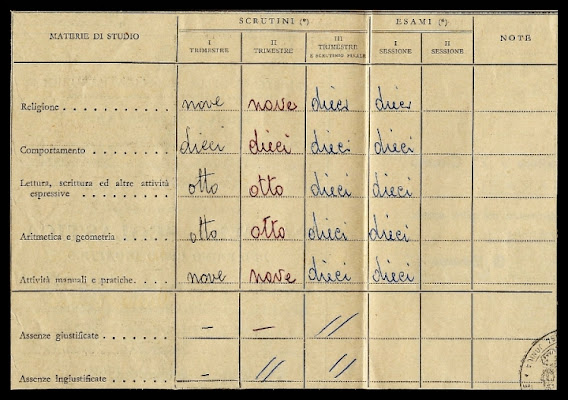 MATERIE DI STUDIO SCRUTINI (*) ESAMI (*) NOTE
I TRIMESTRE II TRIMESTRE III TRIMESTRE E SCRUTINIO FINALE I SESSIONE II SESSIONE
Religione nove nove dieci dieci
Comportamento dieci dieci dieci dieci
Lettura, scrittura ed altre attività
espressive otto otto dieci dieci
Aritmetica e geometria otto otto dieci dieci
Attività manuali e pratiche nove nove dieci dieci
Assenze giustificate — — //
Assenze ingiustificate — // //